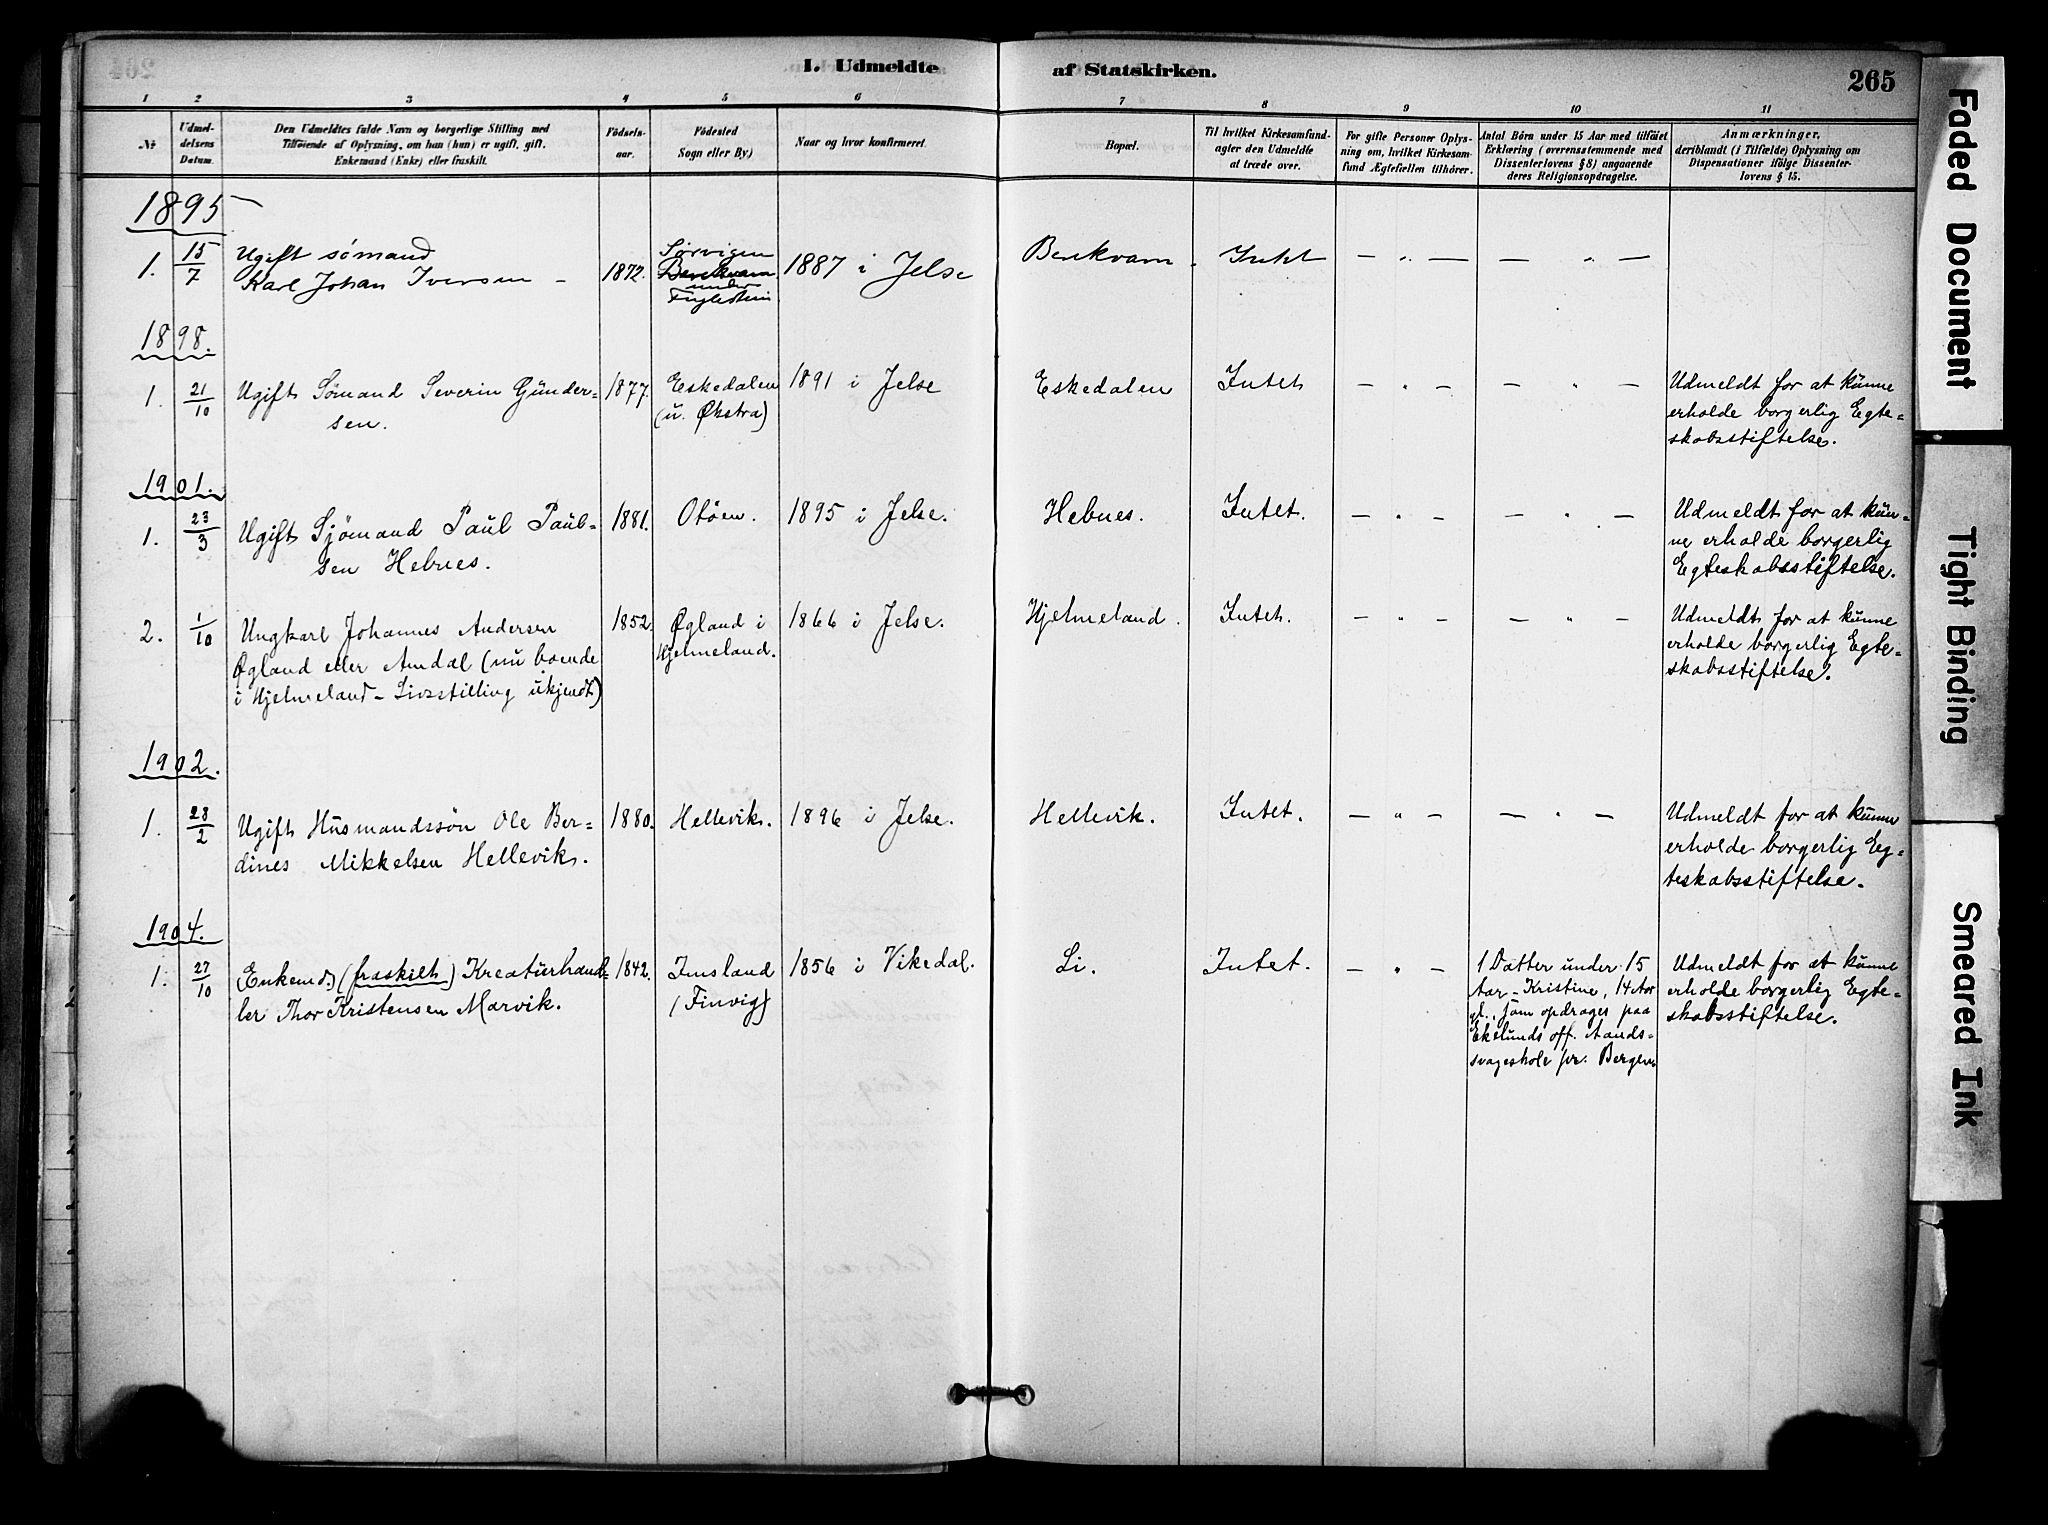 I. Udmeldte af Statskirken. 265
1 2 3 4 5 6 7 8 9 10 11
Nr
Udmeldelsens Datum.
Den Udmeldtes fulde Navn og borgerlige Stilling med
Tilføiende af Oplysning, om han (hun) er ugift, gift,
Enkemand (Enke) eller fraskilt.
Fødselsaar.
Fødested
Sogn eller By)
Naar og hvor konfirmeret.
Bopæl.
Til hvilket Kirkesamfund
agter den Udmeldte
at træde over.
For gifte Personer Oplys-
ning om, hvilket Kirkesam-
fund Ægtefællen tilhører.
Antal Børn under 15 Aar med tilføiet
Erklæring (overensstemmende med
Dissenterlovens § 8) angaaende
deres Religionsopdragelse.
Anmærkninger,
deriblandt (i Tilfælde) Oplysning om
Dispensationer ifølge Dissenter-
lovens § 15.
1895
1. 15/7
Ugift sømand
Karl Johan Iversen –
1872.
Sørvigen
Berekvam
under
1887 i Jelse
Berekvam.
Intet
— " — — " —
1898.
1. 21/10
Ugift Sømand Severin Gunder-
sen.
1877.
Eskedalen
(u. Økstra)
1891 i Jelse
Eskedalen
Intet
— " — — " —
Udmeldt for at kunne
erholde borgerlig Egte-
skabsstiftelse.
1901.
1. 23/3
Ugift Sjømand Paul Paul-
sen Hebnes.
1881.
Otøen.
1895 i Jelse.
Hebnes.
Intet.
— " — — " —
Udmeldt for at kun-
ne erholde borgerlig
Egteskabsstiftelse.
2. 1/10
Ungkarl Johannes Andersen
Øgland eller Amdal (nu boende
i Hjelmeland – Livsstilling ukjendt)
1852.
Øgland i
Hjelmeland.
1866 i Jelse.
Hjelmeland.
Intet.
— " — — " —
Udmeldt for at kunne
erholde borgerlig Egte-
skabsstiftelse.
1902.
1. 28/2
Ugift Husmandssøn Ole Ber-
dines Mikkelsen Hellevik.
1880.
Hellevik.
1896 i Jelse.
Hellevik.
Intet.
— " — — " —
Udmeldt for at kunne
erholde borgerlig Eg-
teskabsstiftelse.
1904.
1. 27/10
Enkemd. (fraskilt) Kreaturhand-
ler Thor Kristensen Marvik.
1842.
Imsland
(Finvig)
1856 i Vikedal.
Li.
Intet.
— " —
1 Datter under 15
Aar – Kristine, 14 Aar
gl., som opdrages paa
Ekelunds off. Aands-
svageskole pr. Bergen
Udmeldt for at kunne
erholde borgerlig Egte-
skabsstiftelse.
Faded Document
Tight Binding
Smeared Ink